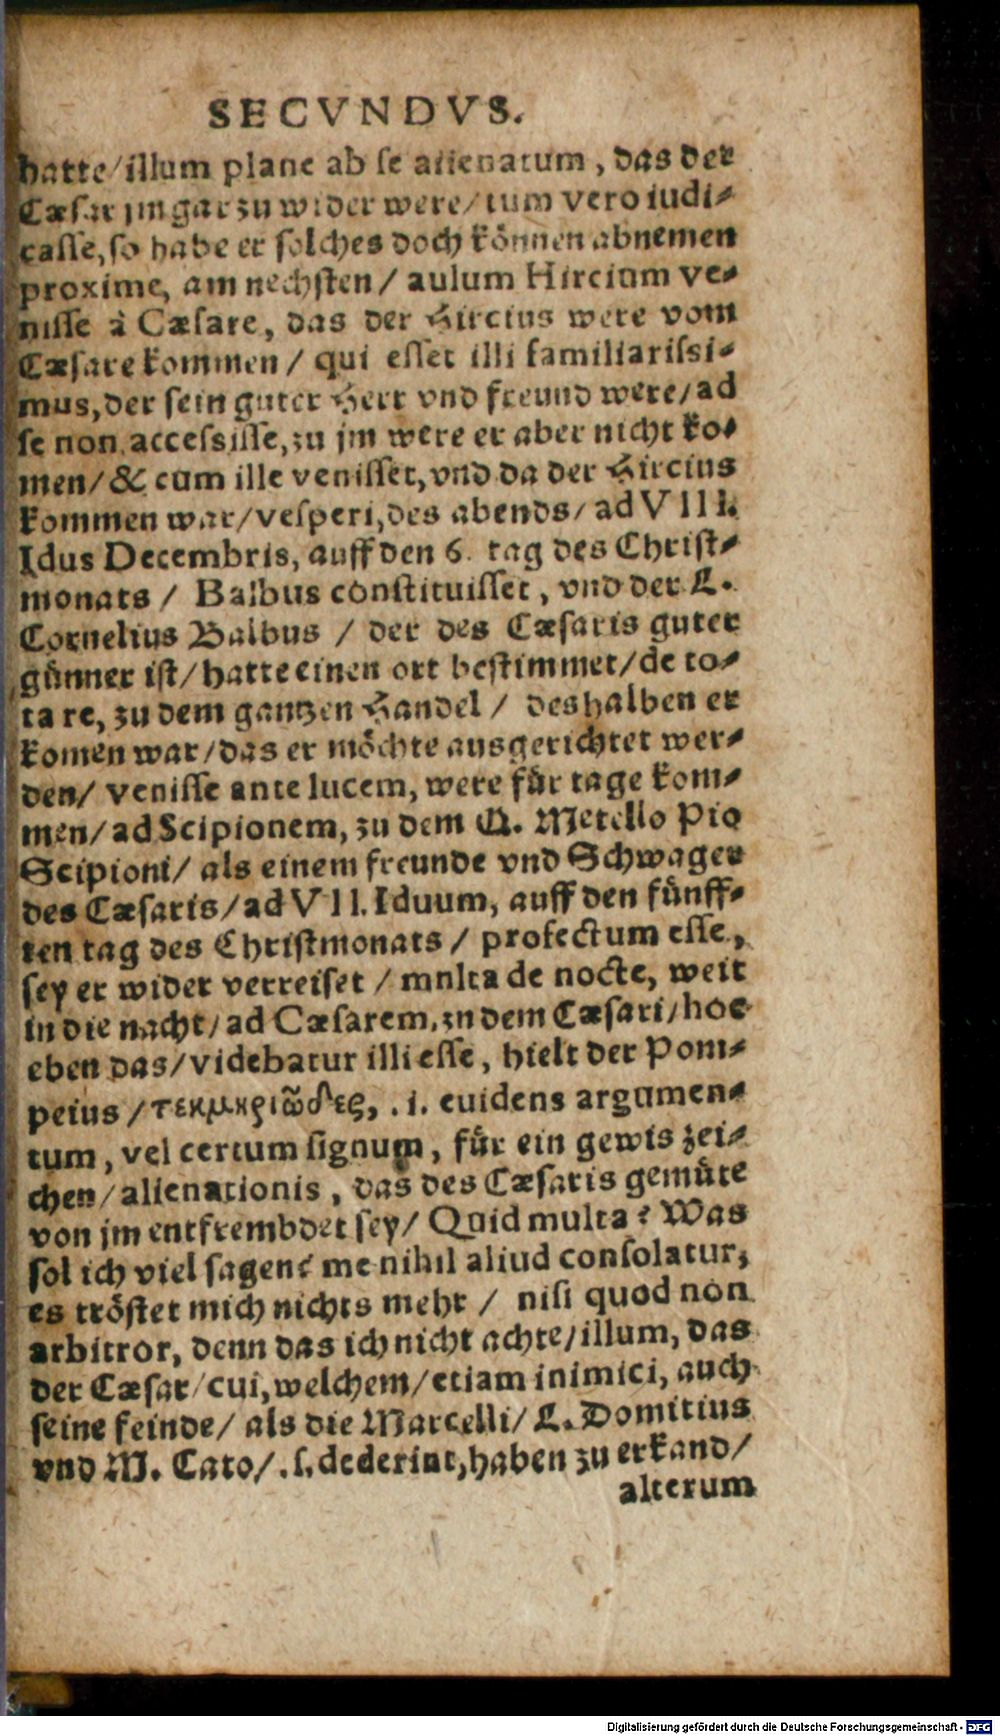 SECVNDVS.
hatte/illum plane ab se alienatum, das der
Cæsar jm gar zu wider were/tum vero iudi-
casse, so habe er solches doch können abnemen
proxime, am nechsten/ aulum Hircium ve-
nisse à Cæsare, das der Hircius were vom
Cæsare kommen/ qui esset illi familiarissi-
mus, der sein guter Herr vnd freund were/ad
se non accessisse, zu jm were er aber nicht ko-
men/& cum ille venisset, vnd da der Hircius
kommen war/vesperi, des abends/ad VIII.
Idus Decembris, auff den 6. tag des Christ-
monats / Balbus constituisset, vnd der L.
Cornelius Balbus / der des Cæsaris guter
günner ist/hatte einen ort bestimmet/de to-
ta re, zu dem gantzen Handel / deshalben er
komen war/das er möchte ausgerichtet wer-
den/ venisse ante lucem, were für tage kom-
men/ad Scipionem, zu dem Q. Metello Pio
Scipioni/ als einem freunde vnd Schwager
des Cæsaris/ad VII. Iduum, auff den fünff-
ten tag des Christmonats / profectum esse,
sey er wider verreiset / mnlta de nocte, weit
in die nacht/ad Cæsarem, zu dem Cæsari/hoc
eben das/videbatur illi esse, hielt der Pom-
peius/τεκμηριῶδες, .i. euidens argumen-
tum, vel certum signum, für ein gewis zei-
chen/alienationis, das des Cæsaris gemüte
von jm entfrembdet sey/ Quid multa? Was
sol ich viel sagen? me nihil aliud consolatur,
es tröstet mich nichts mehr / nisi quod non
arbitror, denn das ich nicht achte/illum, das
der Cæsar/cui, welchem/etiam inimici, auch
seine feinde/ als die Marcelli/ L. Domitius
vnd M. Cato/.s. dederint, haben zu erkand/
alterum
Digitalisierung gefördert durch die Deutsche Forschungsgemeinschaft - DFG